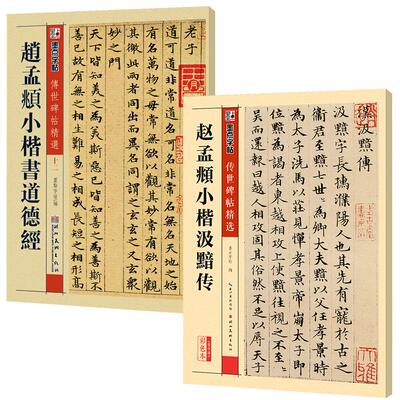 墨点字帖
傳世碑帖精選
十
趙孟頫小楷書道德經
老子
道可道非常道名可名非常名無名天地之始
有名萬物之母常無欲以觀其妙常有欲以觀
其徼此兩者同出而異名同謂之玄玄之又玄眾
妙之門
天下皆知美之為美斯惡已皆知善之為善斯不
善已故有無之相生難易之相成長短之相形高
墨点字帖
传世碑帖精选
赵孟頫小楷汲黯传
彩色本
漢汲黯傳
汲黯字長孺濮陽人也其先有寵於古之
衛君至黯七世世為卿大夫黯以父任孝景時
為太子洗馬以莊見憚孝景帝崩太子即
位黯為謁者東越相攻上使黯往視之不至
至吳而還報曰越人相攻固其俗然不足以辱天子